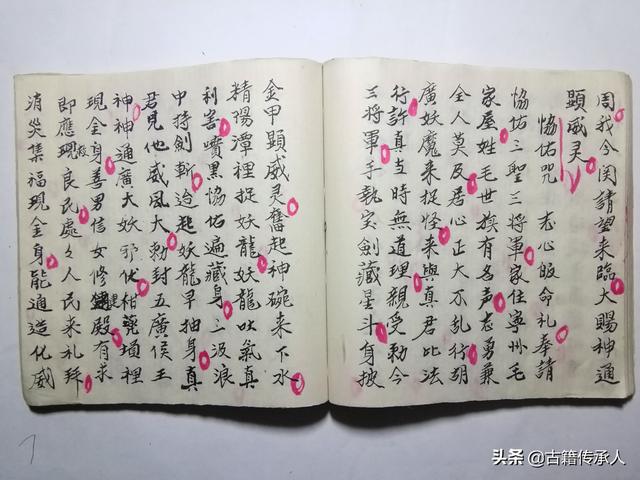 周我今関請望来臨大賜神通
顕威灵
協佑咒 志心皈命礼奉請
協佑三聖三將軍家住寧州毛
家屋姓毛世族有名声志勇兼
全人莫及居心正大不乱行胡
廣妖魔来捉怪来與真君比法
行許真当時無道理親受勅令
三將軍手執宝劍藏星斗身披
金甲顕威灵奮起神碗来下水
精陽潭裡捉妖龍妖龍吐氣真
利害噴黑協佑遍藏身三汲浪
中持劍斬追起妖龍早抽身真
君見他威風大勅封五廣侯王
神神通廣大妖邪伏柑墳裡
現金身善男信女修殿有求
即應現良民處々人民来礼拜
消災集福現金身能通造化威
头条 @古籍传承人